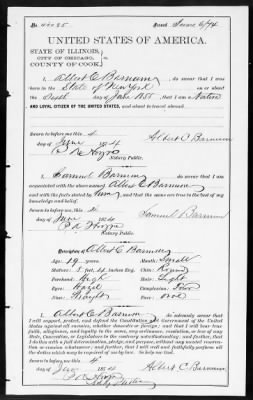 No. 40085 Issued June 6/74
UNITED STATES OF AMERICA.
STATE OF ILLINOIS,
CITY OF CHICAGO, ss.
COUNTY OF COOK.
I, Albert C Barnum, do swear that I was
born in the State of New York on or about
the day of July 1855 that I am a Native
AND LOYAL CITIZEN OF THE UNITED STATES, and about to travel abroad.
Sworn to before me this 4 Albert C Barnum
day of June 1874
Notary Public.
I, Samuel Barnum, do swear that I am
acquainted with the above named Albert C Barnum
and with the facts stated by him, and that the same are true to the best of my
knowledge and belief.
Sworn to before me this 4 Samuel Barnum
day of June 1874
Notary Public.
Description of Albert C Barnum
Age: 19 years. Mouth: Small
Stature: 5 feet, inches Eng. Chin: Round
Forehead: High Hair: Light
Eyes: Hazel Complexion: Fair
Nose: Straight Face: Oval
I, Albert C Barnum, do solemnly swear that I
will support, protect, and defend the Constitution and Government of the United
States against all enemies, whether domestic or foreign; and that I will bear true
faith, allegiance, and loyalty to the same, any ordinance, resolution, or law of any
State, Convention, or Legislature to the contrary notwithstanding; and further, that
I do this with a full determination, pledge, and purpose, without any mental reservation
or evasion whatsoever; and further, that I will well and faithfully perform all
the duties which may be required of me by law. So help me God.
Sworn to before me this 4 Albert C Barnum
day of June 1874